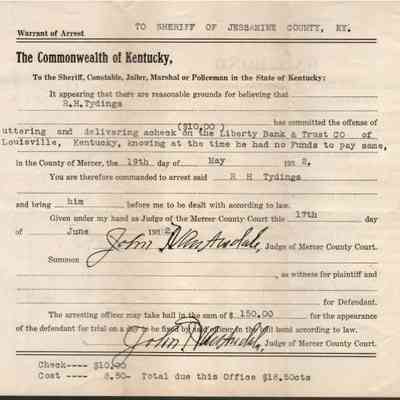 TO SHERIFF OF JESSAMINE COUNTY, KY.
Warrant of Arrest
The Commonwealth of Kentucky,
To the Sheriff, Constable, Jailer, Marshal or Policeman in the State of Kentucky:
It appearing that there are reasonable grounds for believing that
R.H.Tydings
($10.00) has committed the offense of
uttering and delivering acheck on the Liberty Bank & Trust CO of
Louisville, Kentucky, knowing at the time he had no Funds to pay same,
in the County of Mercer, the 19th day of May 1932,
You are therefore commanded to arrest said R H Tydings
and bring him before me to be dealt with according to law.
Given under my hand as Judge of the Mercer County Court this 17th day
of June 1932 John Judge of Mercer County Court.
Summon
, as witness for plaintiff and
for Defendant.
The arresting officer may take bail in the sum of $ 150.00 for the appearance
of the defendant for trial on a day to be fixed by said officer in the bail bond according to law.
John Judge of Mercer County Court.
Check---- $10.00
Cost ---- 8.50- Total due this Office $18.50cts